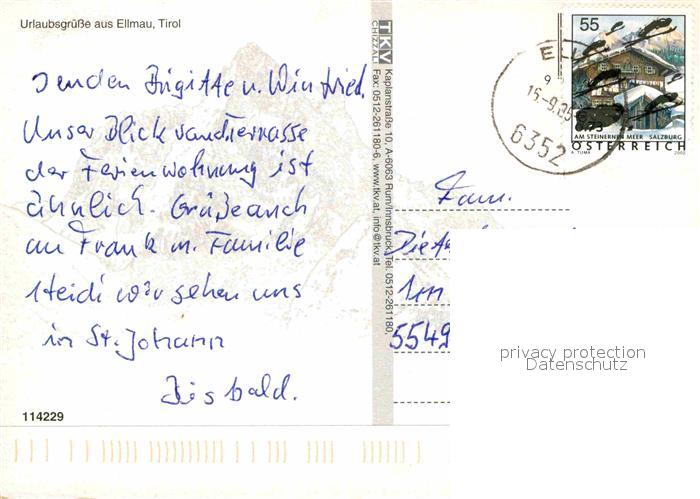 Urlaubsgrüße aus Ellmau, Tirol
senden Brigitte u. Winfried.
Unser Blick von d. Terrasse
der Ferienwohnung ist
ähnlich. Grüße auch
an Frank m. Familie
Heidi wir sehen uns
in St. Johann
Bis bald.
114229
TKV
CHIZZALI
Kaplanstraße 10, A-6063 Rum/Innsbruck, Tel. 0512-261180,
Fax: 0512-261180-6, www.tkv.at, info@tkv.at
55
AM STEINERNEN MEER SALZBURG
ÖSTERREICH
A. TUMA 2002
6352
Fam.
5549
privacy protection
Datenschutz